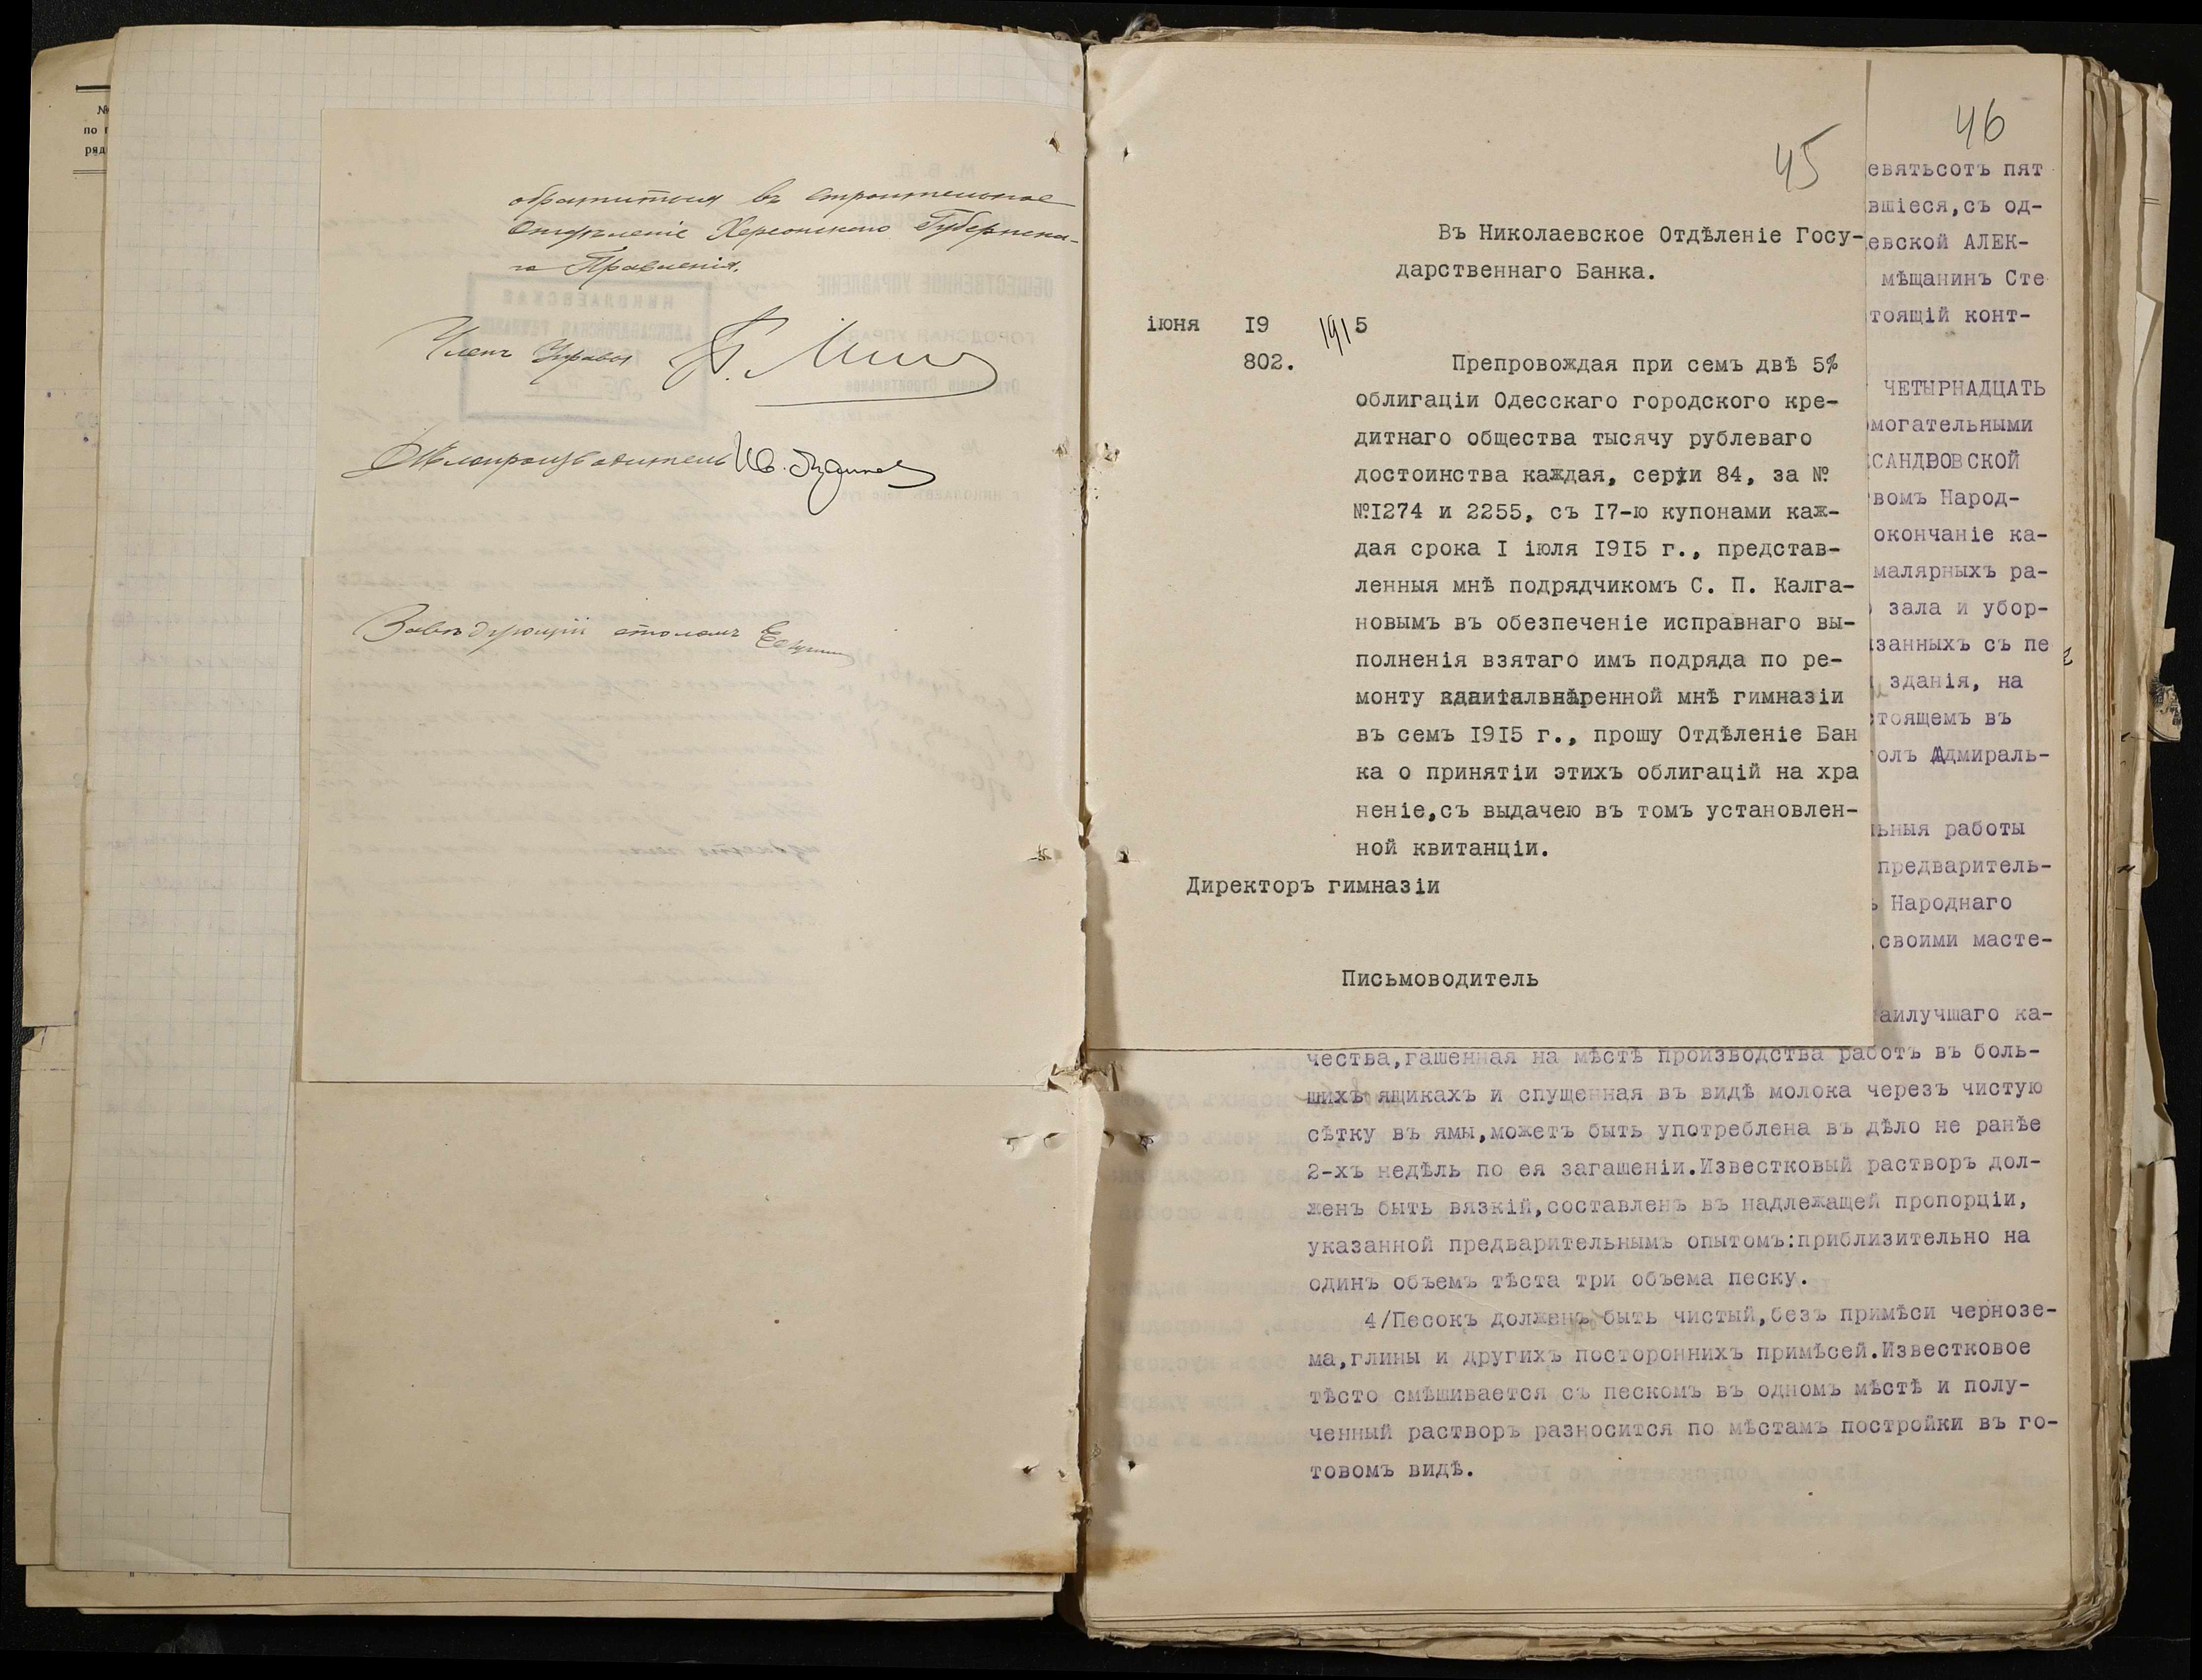 №
по п
ряд
обратиться въ Строительное
Отдѣленіе Херсонскаго Губернска-
го Правленія.
Членъ Управы
Дѣлопроизводитель
Завѣдующій столомъ
45
Въ Николаевское Отдѣленіе Госу-
дарственнаго Банка.
іюня 19 1915
802.
Препровождая при семъ двѣ 5%
облигаціи Одесскаго городского кре-
дитнаго общества тысячу рублеваго
достоинства каждая, серіи 84, за №
№1274 и 2255, съ 17-ю купонами каж-
дая срока I іюля 1915 г., представ-
ленныя мнѣ подрядчикомъ С. П. Калга-
новымъ въ обезпеченіе исправнаго вы-
полненія взятаго имъ подряда по ре-
монту ренной мнѣ гимназіи
въ семъ 1915 г., прошу Отдѣленіе Бан
ка о принятіи этихъ облигацій на хра
неніе,съ выдачею въ томъ установлен-
ной квитанціи.
Директоръ гимназіи
Письмоводитель
46
евятьсотъ пят
вшіеся,съ од-
евской АЛЕК-
мѣщанинъ Сте
тоящій конт-
ЧЕТЫРНАДЦАТЬ
могательными
САНДРОВСКОЙ
вомъ Народ-
окончаніе ка-
малярныхъ ра-
зала и убор-
занныхъ съ пе
зданія, на
тоящемъ въ
олъ Адмираль-
ьныя работы
предваритель-
ъ Народнаго
,своими масте-
аилучшаго ка-
чества,гашенная на мѣстѣ производства работъ въ боль-
шихъ ящикахъ и спущенная въ видѣ молока черезъ чистую
сѣтку въ ямы,можетъ быть употреблена въ дѣло не ранѣе
2-хъ недѣль по ея загашеніи.Известковый растворъ дол-
женъ быть вязкій,составленъ въ надлежащей пропорціи,
указанной предварительнымъ опытомъ:приблизительно на
одинъ объемъ тѣста три объема песку.
4/Песокъ долженъ быть чистый,безъ примѣси чернозе-
ма,глины и другихъ постороннихъ примѣсей.Известковое
тѣсто смѣшивается съ пескомъ въ одномъ мѣстѣ и полу-
ченный растворъ разносится по мѣстамъ постройки въ го-
товомъ видѣ.